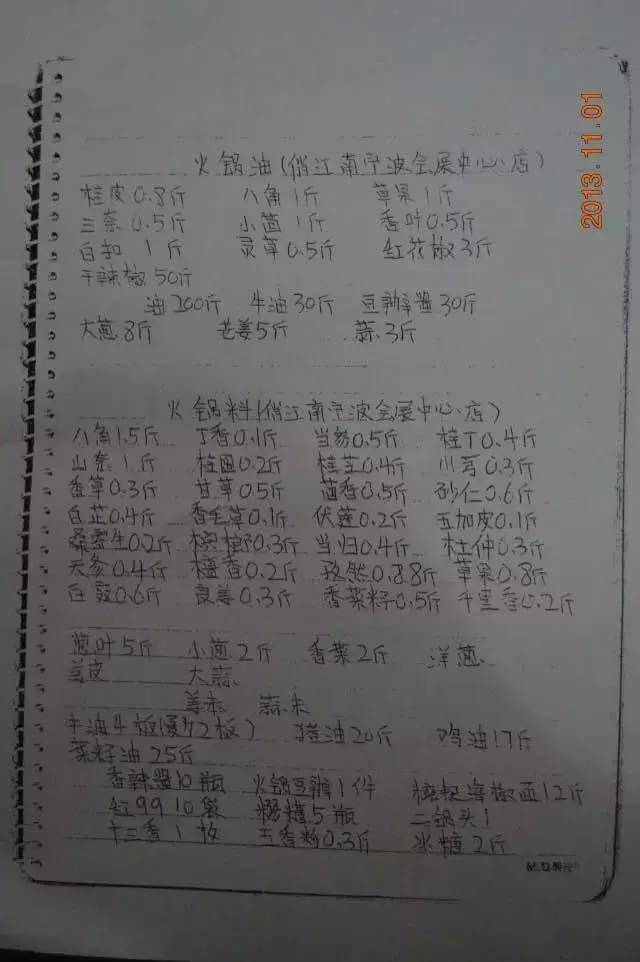 2013.11.01
火锅油(俏江南宁波会展中心店)
桂皮0.8斤 八角1斤 草果1斤
三奈0.5斤 小茴1斤 香叶0.5斤
白扣1斤 灵草0.5斤 红花椒3斤
干辣椒50斤
油200斤 牛油30斤 豆瓣酱30斤
大葱8斤 老姜5斤 蒜3斤
火锅料(俏江南宁波会展中心店)
八角1.5斤 丁香0.1斤 当参0.5斤 桂丁0.4斤
山奈1斤 桂圆0.2斤 桂芝0.4斤 川芎0.3斤
香草0.3斤 甘草0.5斤 茴香0.5斤 砂仁0.6斤
白芷0.4斤 香毛草0.1斤 伏苓0.2斤 五加皮0.1斤
桑寄生0.2斤 槟榔0.3斤 当归0.4斤 杜仲0.3斤
天麻0.4斤 檀香0.2斤 孜然0.8斤 草果0.8斤
白蔻0.6斤 良姜0.3斤 香菜籽0.5斤 千里香0.2斤
葱叶5斤 小葱2斤 香菜2斤 洋葱
姜皮 大蒜
姜末 蒜末
牛油4板(夏天2板) 猪油20斤 鸡油17斤
菜籽油25斤
香辣酱10瓶 火锅豆瓣1件 糍粑海椒面12斤
红99 10袋 糟5瓶 二锅头1
十三香1 五香粉0.3斤 冰糖2斤